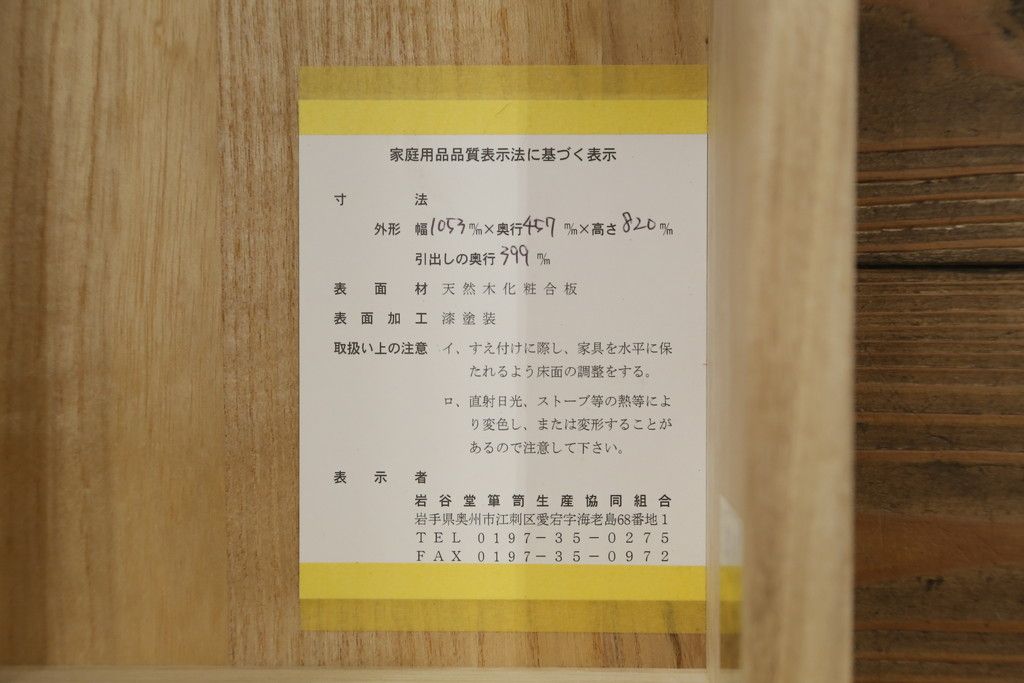 家庭用品品質表示法に基づく表示
寸法
外形 幅1053㎜×奥行457㎜×高さ820㎜
引出しの奥行399㎜
表面材 天然木化粧合板
表面加工 漆塗装
取扱い上の注意 イ、すえ付けに際し、家具を水平に保
たれるよう床面の調整をする。
ロ、直射日光、ストーブ等の熱等によ
り変色し、または変形することが
あるので注意して下さい。
表示者
岩谷堂箪笥生産協同組合
岩手県奥州市江刺区愛宕字海老島68番地1
TEL 0197-35-0275
FAX 0197-35-0972